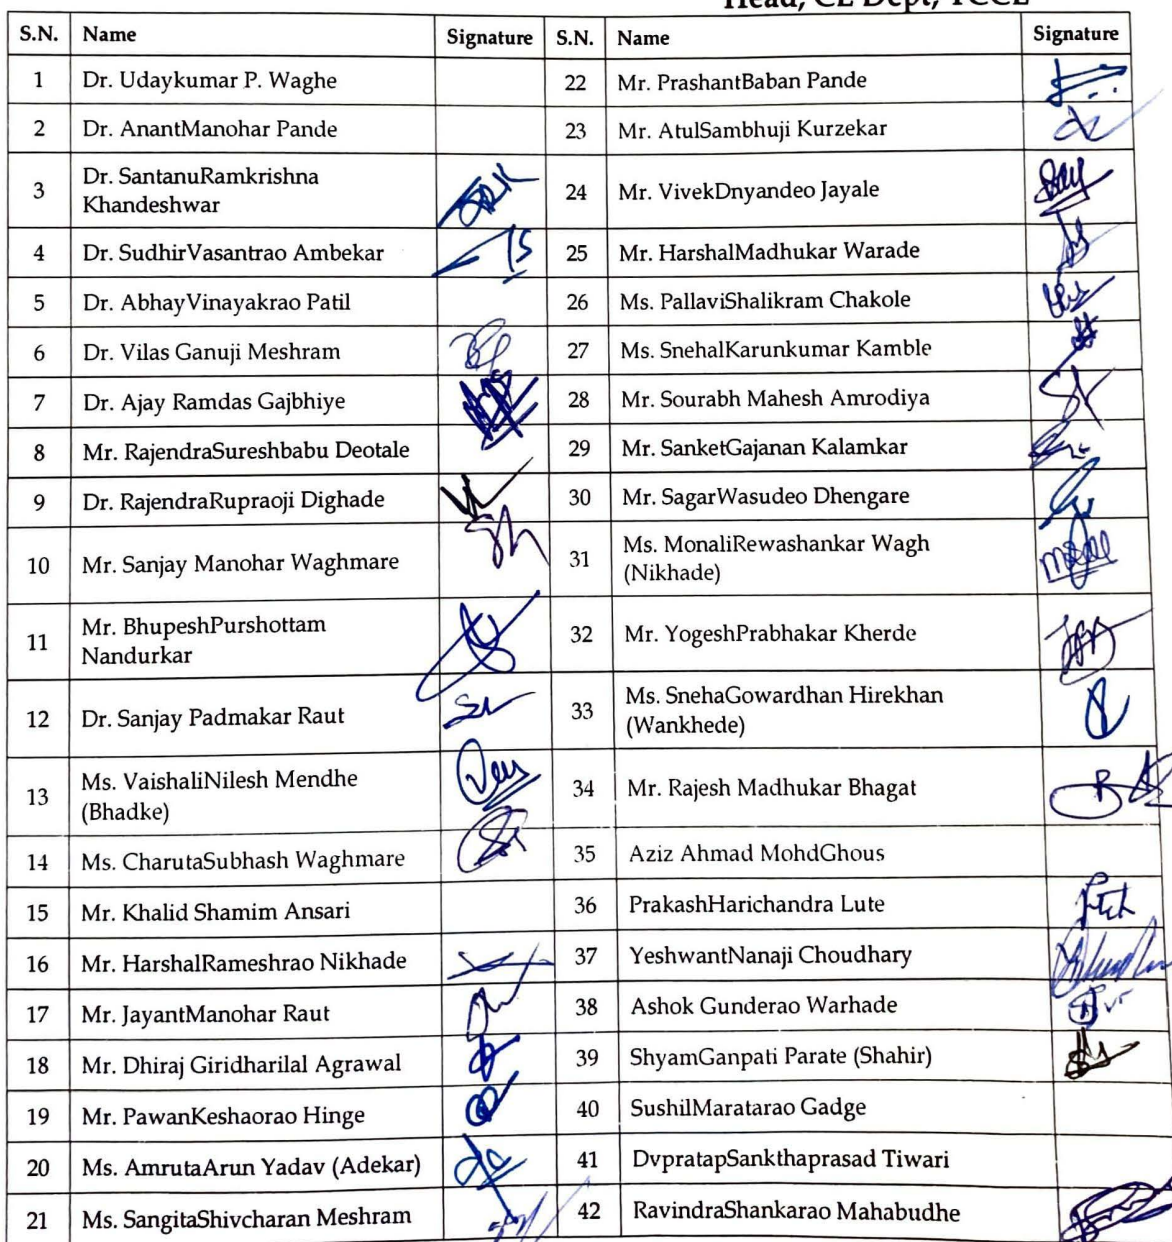 Head, CE Dept, YCCE
S.N. Name Signature S.N. Name Signature
1 Dr. Udaykumar P. Waghe 22 Mr. PrashantBaban Pande
2 Dr. AnantManohar Pande 23 Mr. AtulSambhuji Kurzekar
3 Dr. SantanuRamkrishna
Khandeshwar 24 Mr. VivekDnyandeo Jayale
4 Dr. SudhirVasantrao Ambekar 25 Mr. HarshalMadhukar Warade
5 Dr. AbhayVinayakrao Patil 26 Ms. PallaviShalikram Chakole
6 Dr. Vilas Ganuji Meshram 27 Ms. SnehalKarunkumar Kamble
7 Dr. Ajay Ramdas Gajbhiye 28 Mr. Sourabh Mahesh Amrodiya
8 Mr. RajendraSureshbabu Deotale 29 Mr. SanketGajanan Kalamkar
9 Dr. RajendraRupraoji Dighade 30 Mr. SagarWasudeo Dhengare
10 Mr. Sanjay Manohar Waghmare 31 Ms. MonaliRewashankar Wagh
(Nikhade)
11 Mr. BhupeshPurshottam
Nandurkar 32 Mr. YogeshPrabhakar Kherde
12 Dr. Sanjay Padmakar Raut 33 Ms. SnehaGowardhan Hirekhan
(Wankhede)
13 Ms. VaishaliNilesh Mendhe
(Bhadke) 34 Mr. Rajesh Madhukar Bhagat
14 Ms. CharutaSubhash Waghmare 35 Aziz Ahmad MohdGhous
15 Mr. Khalid Shamim Ansari 36 PrakashHarichandra Lute
16 Mr. HarshalRameshrao Nikhade 37 YeshwantNanaji Choudhary
17 Mr. JayantManohar Raut 38 Ashok Gunderao Warhade
18 Mr. Dhiraj Giridharilal Agrawal 39 ShyamGanpati Parate (Shahir)
19 Mr. PawanKeshaorao Hinge 40 SushilMaratarao Gadge
20 Ms. AmrutaArun Yadav (Adekar) 41 DvpratapSankthaprasad Tiwari
21 Ms. SangitaShivcharan Meshram 42 RavindraShankarao Mahabudhe